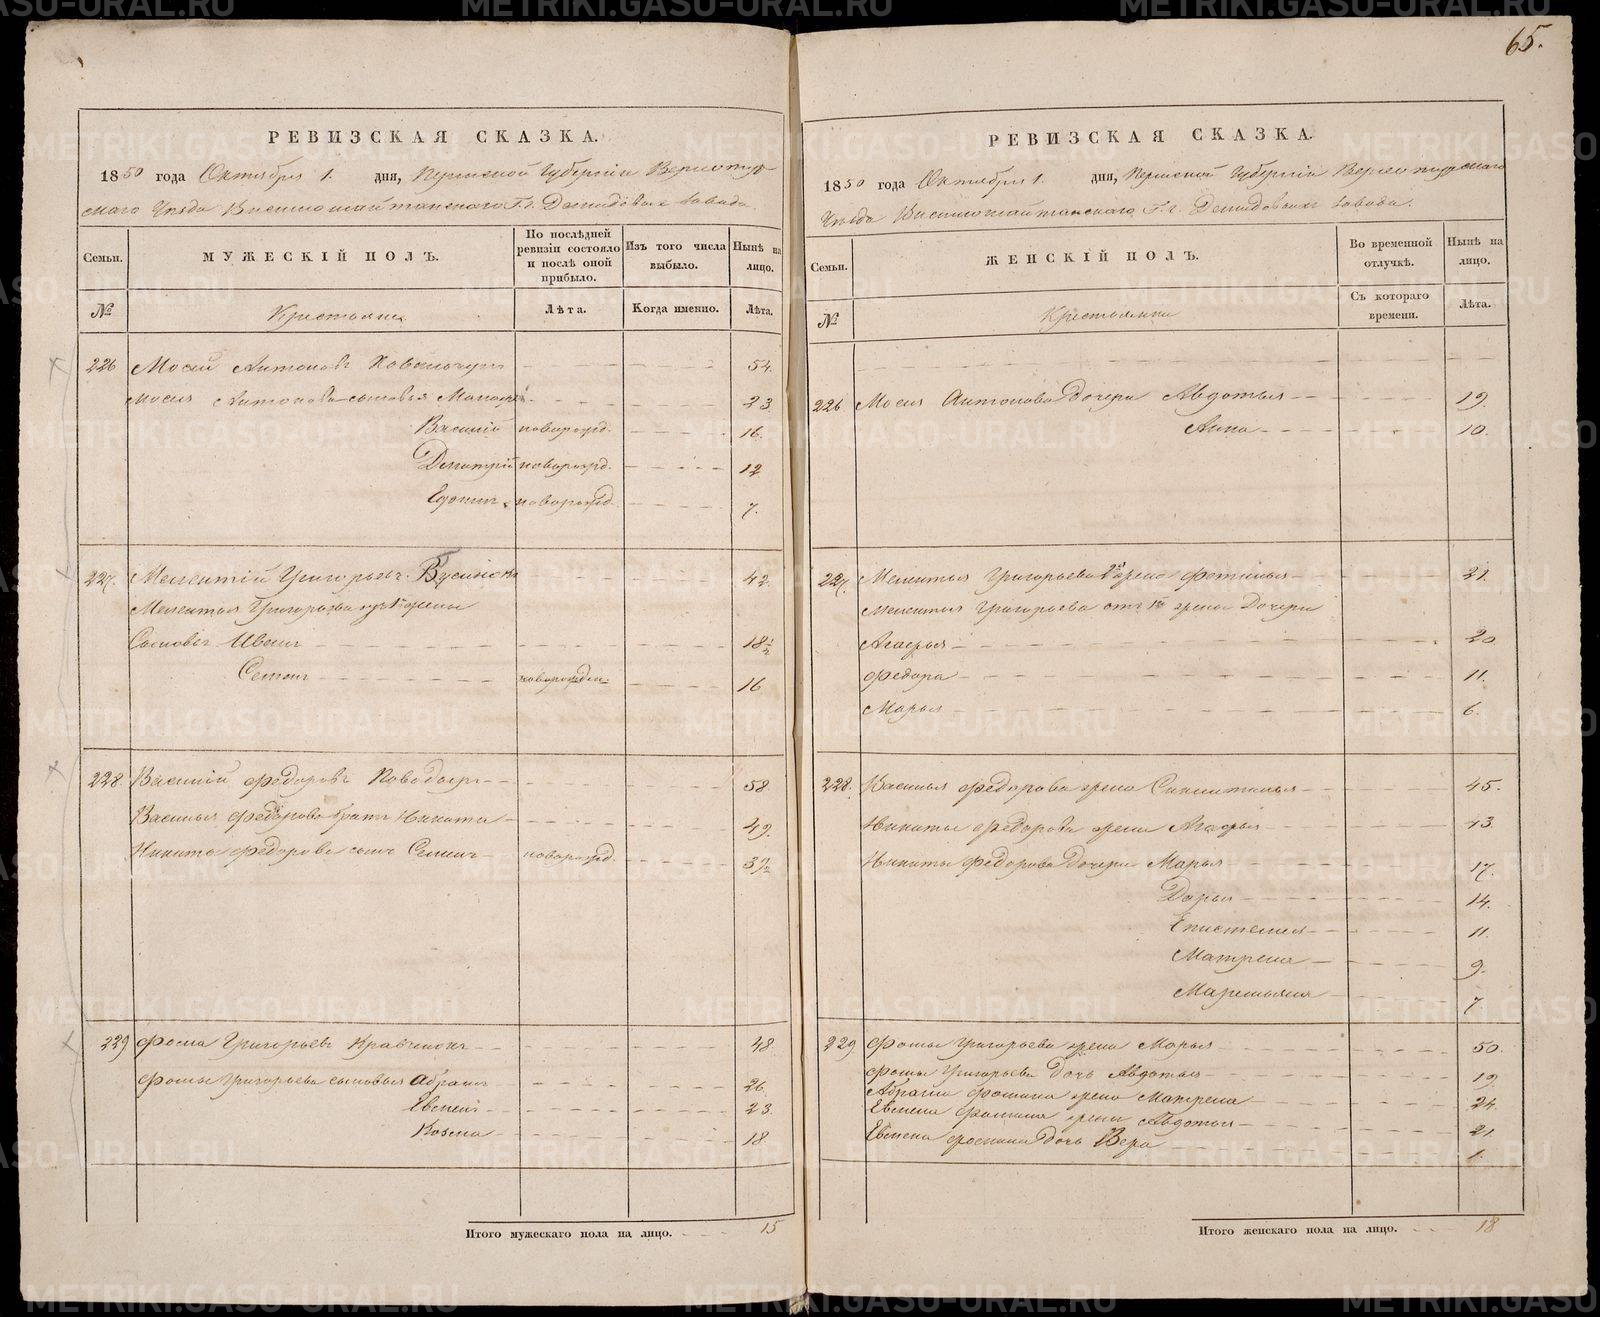 65.
РЕВИЗСКАЯ СКАЗКА.
1850 года Октября 1. дня, Пермской Губерніи Верхотур-
скаго Уѣзда Висимошайтанскаго Г.г. Демидовыхъ завода
Семьи.
МУЖЕСКІЙ ПОЛЪ.
По послѣдней ревизіи состояло и послѣ оной прибыло.
Изъ того числа выбыло.
Нынѣ на лицо.
№
Крестьяне
Лѣта.
Когда именно.
Лѣта.
226 Мосій Антоновъ 54.
Мосія Антонова сыновья 23.
Василій новорожд. 16.
Дмитрій новорожд. 12
новорожд. 7.
227. Мелентій Григорьевъ 42.
Мелентья Григорьева жены
Сыновья Иванъ 18½
Семенъ новорожден. 16
228. Василій Федоровъ 58.
Василья Федорова братъ Никита 49.
Никиты Федорова сынъ Семенъ новорожд. 3½
229 Фома Григорьевъ Кравченокъ 48.
Фомы Григорьева сыновья Абрамъ 26.
Евменъ 23.
Козма 18.
Итого мужескаго пола на лицо. 15
РЕВИЗСКАЯ СКАЗКА.
1850 года Октября 1. дня, Пермской Губерніи Верхотурскаго
Уѣзда Висимошайтанскаго Г.г. Демидовыхъ завода.
Семьи.
ЖЕНСКІЙ ПОЛЪ.
Во временной отлучкѣ.
Нынѣ на лицо.
№
Крестьянки
Съ котораго времени.
Лѣта.
226 Мосія Антонова дочери Авдотья 19.
Анна 10.
227. Мелентья Григорьева 2я жена Фетинья 21.
Мелентья Григорьева отъ 1й жены дочери
Агафья 20
Федора 11.
Марья 6.
228. Василья Федорова жена 45.
Никиты Федорова жена Агафья 43
Никиты Федорова дочери Марья 17.
Дарья 14.
Епистемия 11.
Матрена 9.
Маремьяна 7
229 Фомы Григорьева жена Марья 50.
Фомы Григорьева дочь Авдотья 19.
Абрама Фомина жена Матрена 24
Евмена Фомина жена Авдотья 21.
Евмена Фомина дочь Вера 1.
Итого женскаго пола на лицо. 18
METRIKI.GASO-URAL.RU